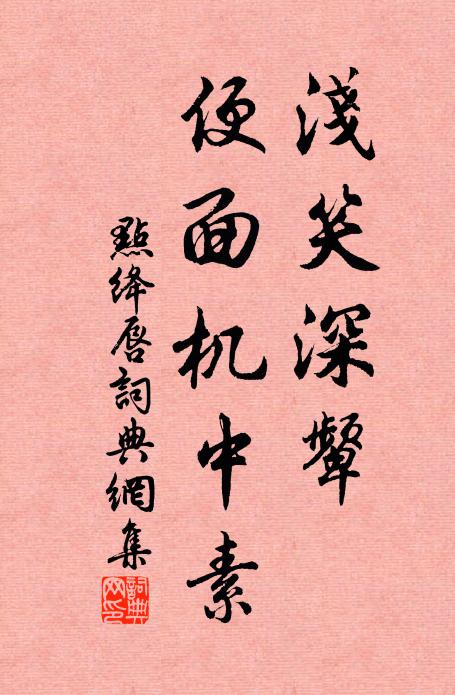 淺笑深顰
便面机中素
點絳唇詞典網集
詞典網印